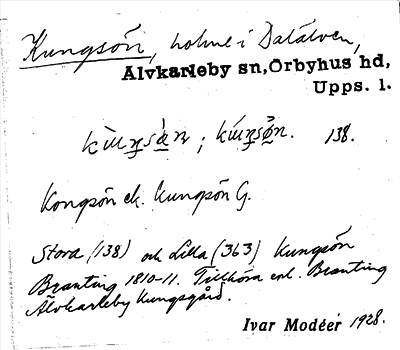 Kungsön, holme i Dalälven,
Älvkarleby sn, Örbyhus hd,
Upps. l.
138.
Kongsön ek. Kungsön G.
Stora (138) och Lilla (363) Kungsön
Branting 1810-11. Tillhöra enl. Branting
Älvkarleby Kungsgård.
Ivar Modéer 1928.